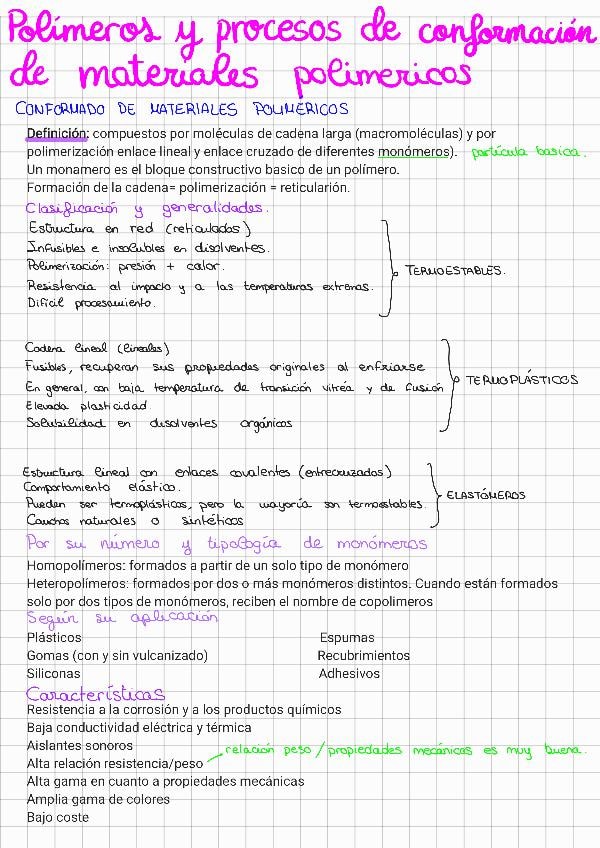 Polímeros y procesos de conformación
de materiales polimericos
CONFORMADO DE MATERIALES POLIMÉRICOS
Definición: compuestos por moléculas de cadena larga (macromoléculas) y por
polimerización enlace lineal y enlace cruzado de diferentes monómeros). partícula basica.
Un monamero es el bloque constructivo basico de un polímero.
Formación de la cadena= polimerización = reticularión.
Clasificación y generalidades.
Estructura en red (reticulados)
Infusibles e insolubles en disolventes.
Polimerización: presión + calor.
Resistencia al impacto y a las temperaturas extremas.
Difícil procesamiento.
TERMOESTABLES.
Cadena lineal (lineales)
Fusibles, recuperan sus propiedades originales al enfriarse
En general, con baja temperatura de transición vítrea y de fusión
Elevada plasticidad
Solubilidad en disolventes orgánicos
TERMOPLÁSTICOS
Estructura lineal con enlaces covalentes (entrecruzados)
Comportamiento elástico.
Pueden ser termoplásticos, pero la mayoría son termoestables.
Cauchos naturales o sintéticos
ELASTÓMEROS
Por su número y tipología de monómeros
Homopolímeros: formados a partir de un solo tipo de monómero
Heteropolímeros: formados por dos o más monómeros distintos. Cuando están formados
solo por dos tipos de monómeros, reciben el nombre de copolimeros
Según su aplicación
Plásticos
Gomas (con y sin vulcanizado)
Siliconas
Espumas
Recubrimientos
Adhesivos
Características
Resistencia a la corrosión y a los productos químicos
Baja conductividad eléctrica y térmica
Aislantes sonoros
Alta relación resistencia/peso
relación peso/propiedades mecánicas es muy buena.
Alta gama en cuanto a propiedades mecánicas
Amplia gama de colores
Bajo coste